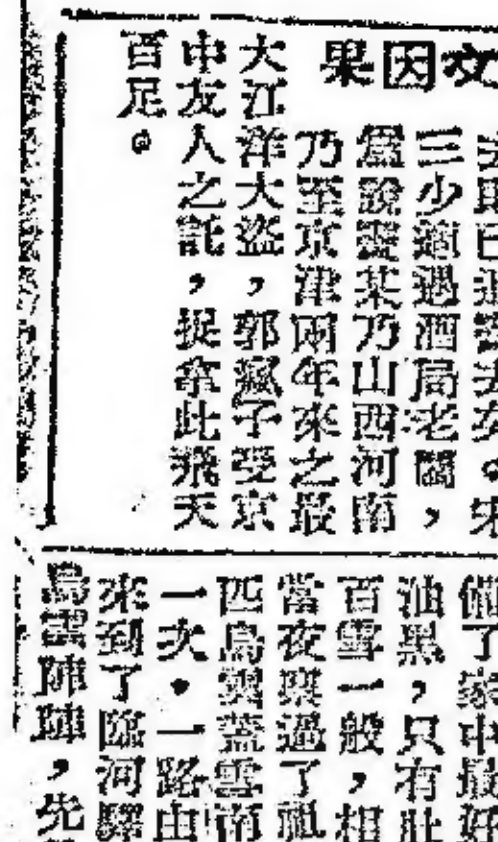 文因果
三少適過酒局老闆，
爲說某乃山西河南
乃至京津兩年來之最
大江洋大盜，郭瘋子受京
申友人之託，捉拿此飛天
百足。
備了家中最好
油黑，只有肚
百雪一般，相
當夜稟過了祖
匹烏蓋雲南
一次。一路由
來到了臨河驛
烏雲陣陣，先